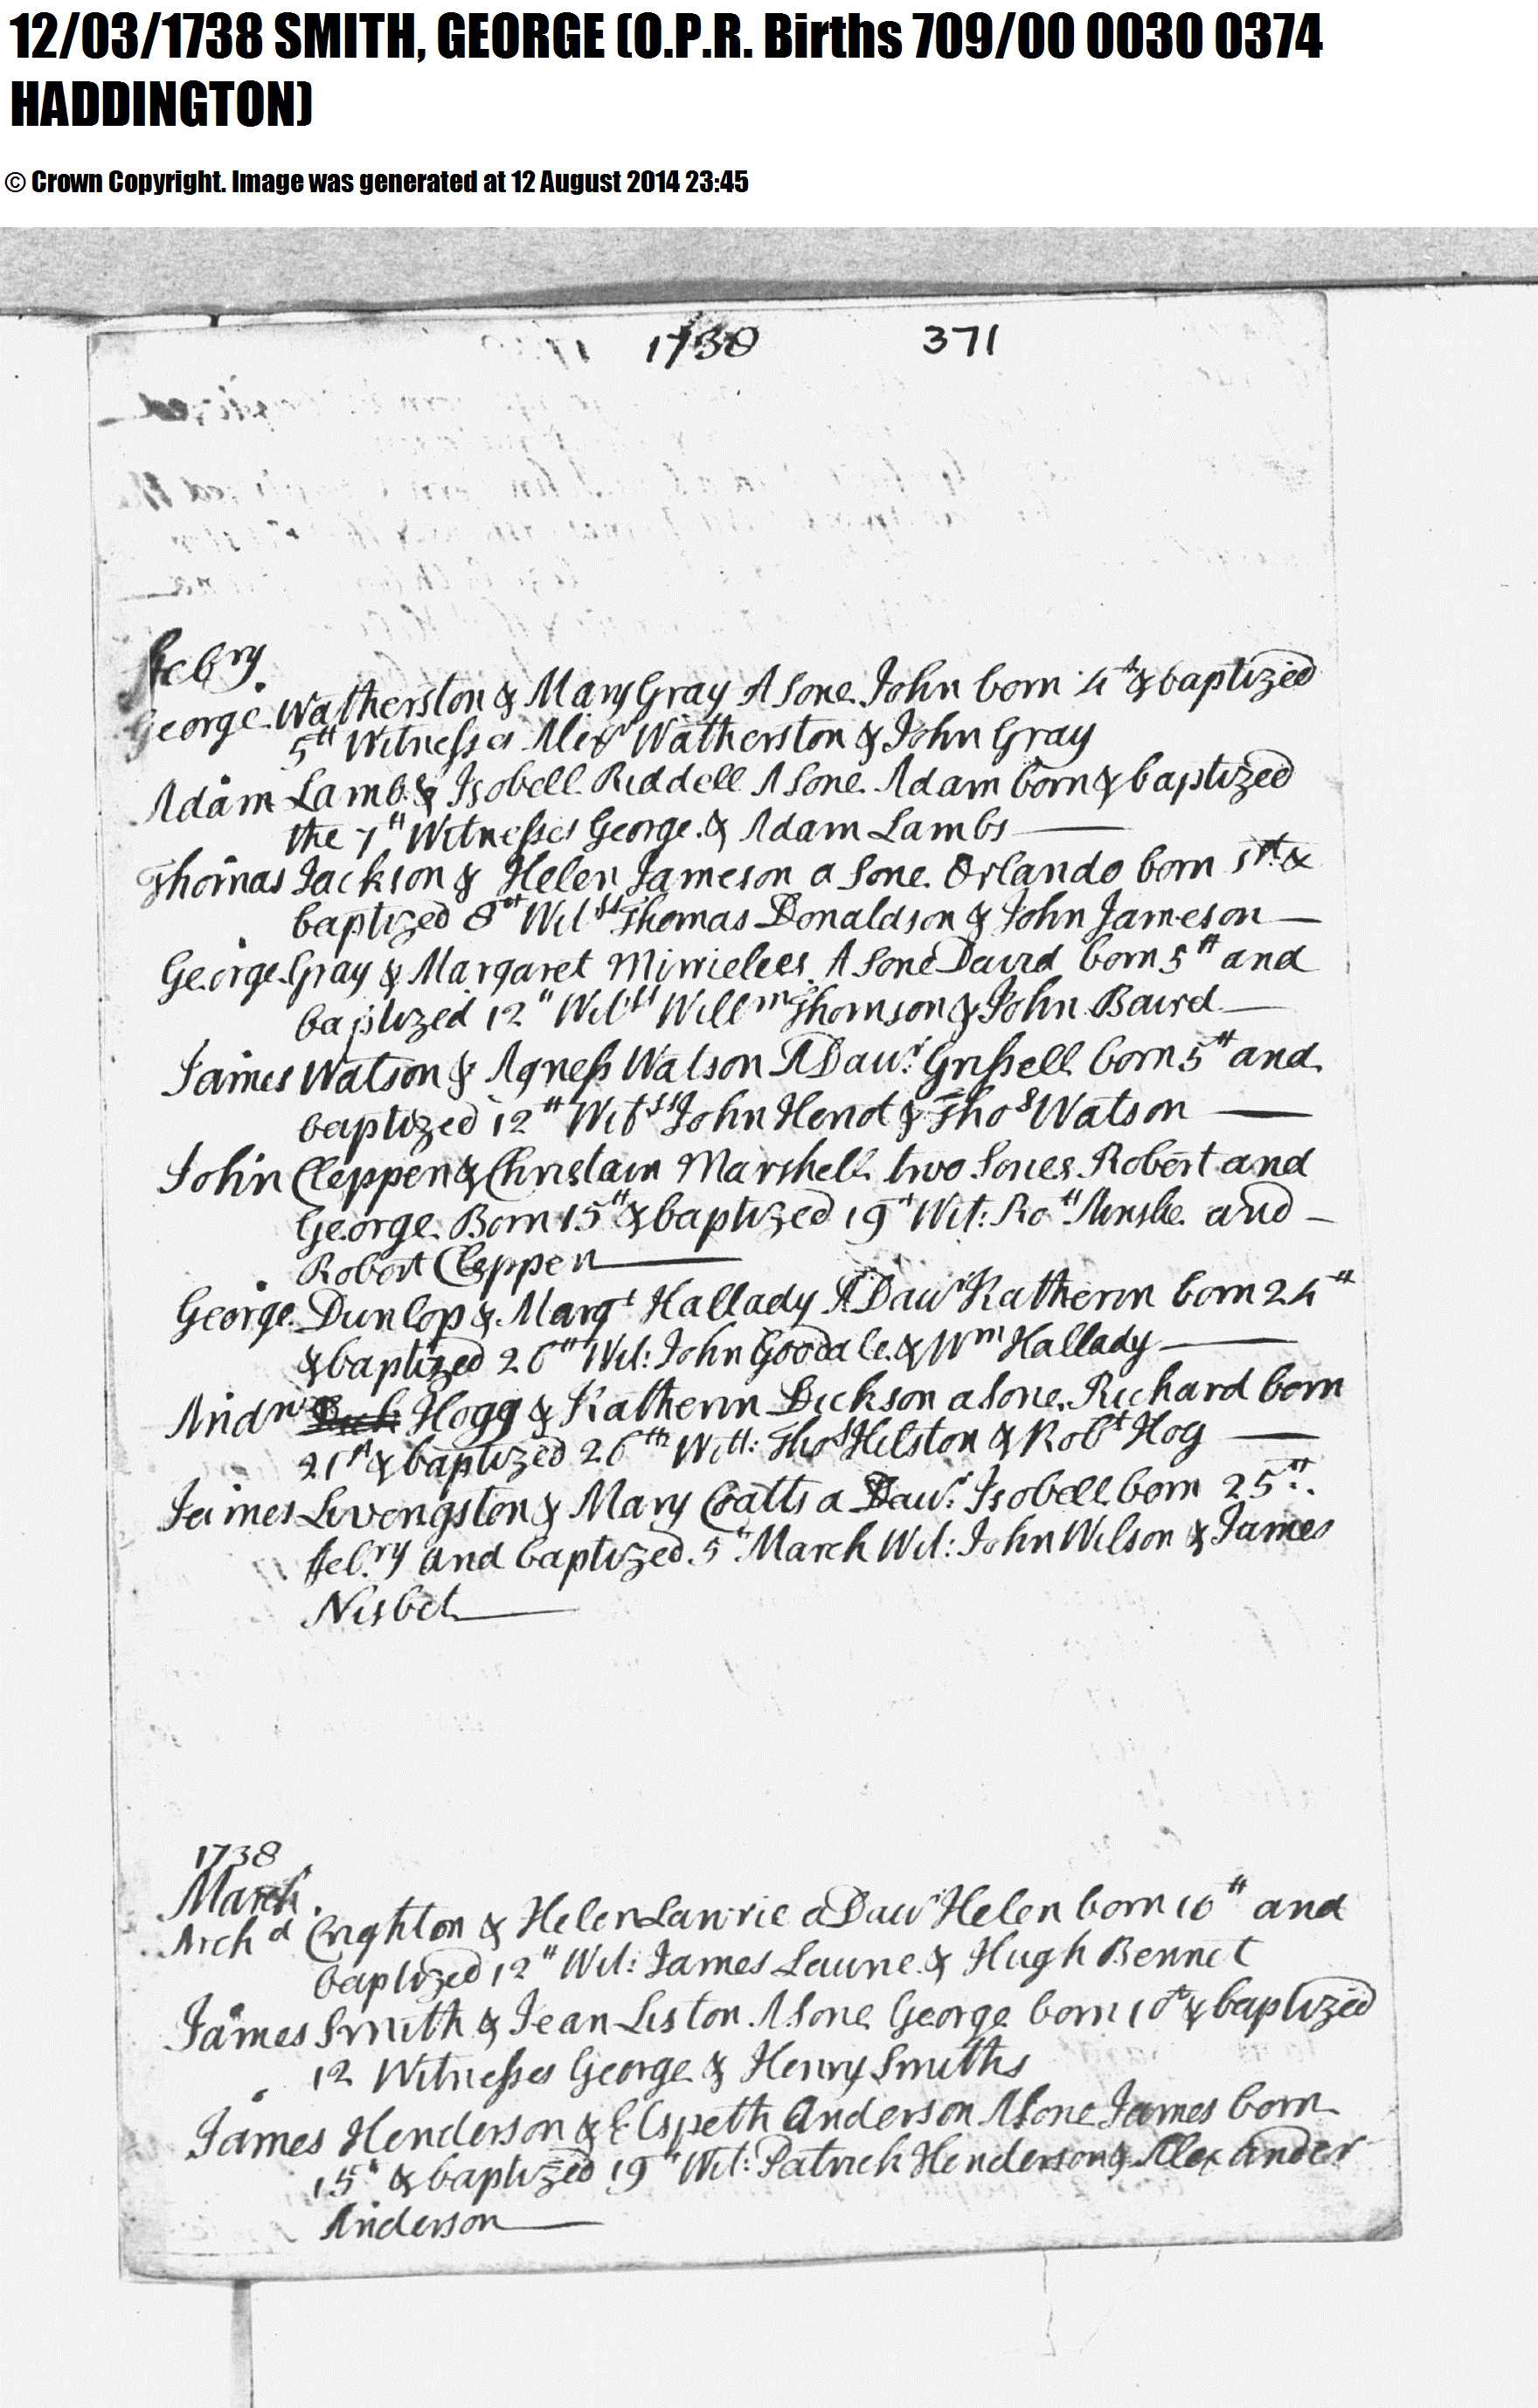 12/03/1738 SMITH, GEORGE (O.P.R. Births 709/00 0030 0374
HADDINGTON)
© Crown Copyright. Image was generated at 12 August 2014 23:45
1738 371
Febry
George Watherston & Mary Gray A Sone John born 4t & baptized
5tt Witnesses Alexr Watherston & John Gray
Adam Lamb & Isobell Riddell A Sone Adam born & baptized
the 7tt Witnesses George & Adam Lambs
Thomas Jackson & Helen Jameson a Sone Orlando born 1st &
baptized 8tt Witss Thomas Donaldson & John Jameson
George Gray & Margaret Mirrielees A Sone David born 5tt and
baptized 12tt Witss Willm Thomson & John Baird
James Watson & Agness Watson A Dawr Grissell born 5tt and
baptized 12tt Witss John Henot & Thos Watson
John Cleppen & Christain Marshell two Sones Robert and
George Born 15tt & baptized 19tt Wit: Rott Ainslie and
Robert Cleppen
George Dunlop & Margt Hallady A Dawr Katherin born 24tt
& baptized 26tt Wit: John Goodale & Wm Hallady
Andw Hogg & Katherin Dickson a Sone Richard born
21st & baptized 26th Witt: Thos Hilston & Robt Hog
James Livengston & Mary Coatts a Dawr Isobell born 25tt
febry and baptized 5tt March Wit: John Wilson & James
Nisbet
1738
March
Archd Crighton & Helen Lawrie a Dawr Helen born 10tt and
baptized 12tt Wit: James Laurie & Hugh Bennet
James Smith & Jean Liston A Sone George born 10t & baptized
12 Witnesses George & Henry Smiths
James Henderson & Elspeth Anderson A Sone James born
15t & baptized 19tt Wit: Patrick Henderson & Alexander
Anderson